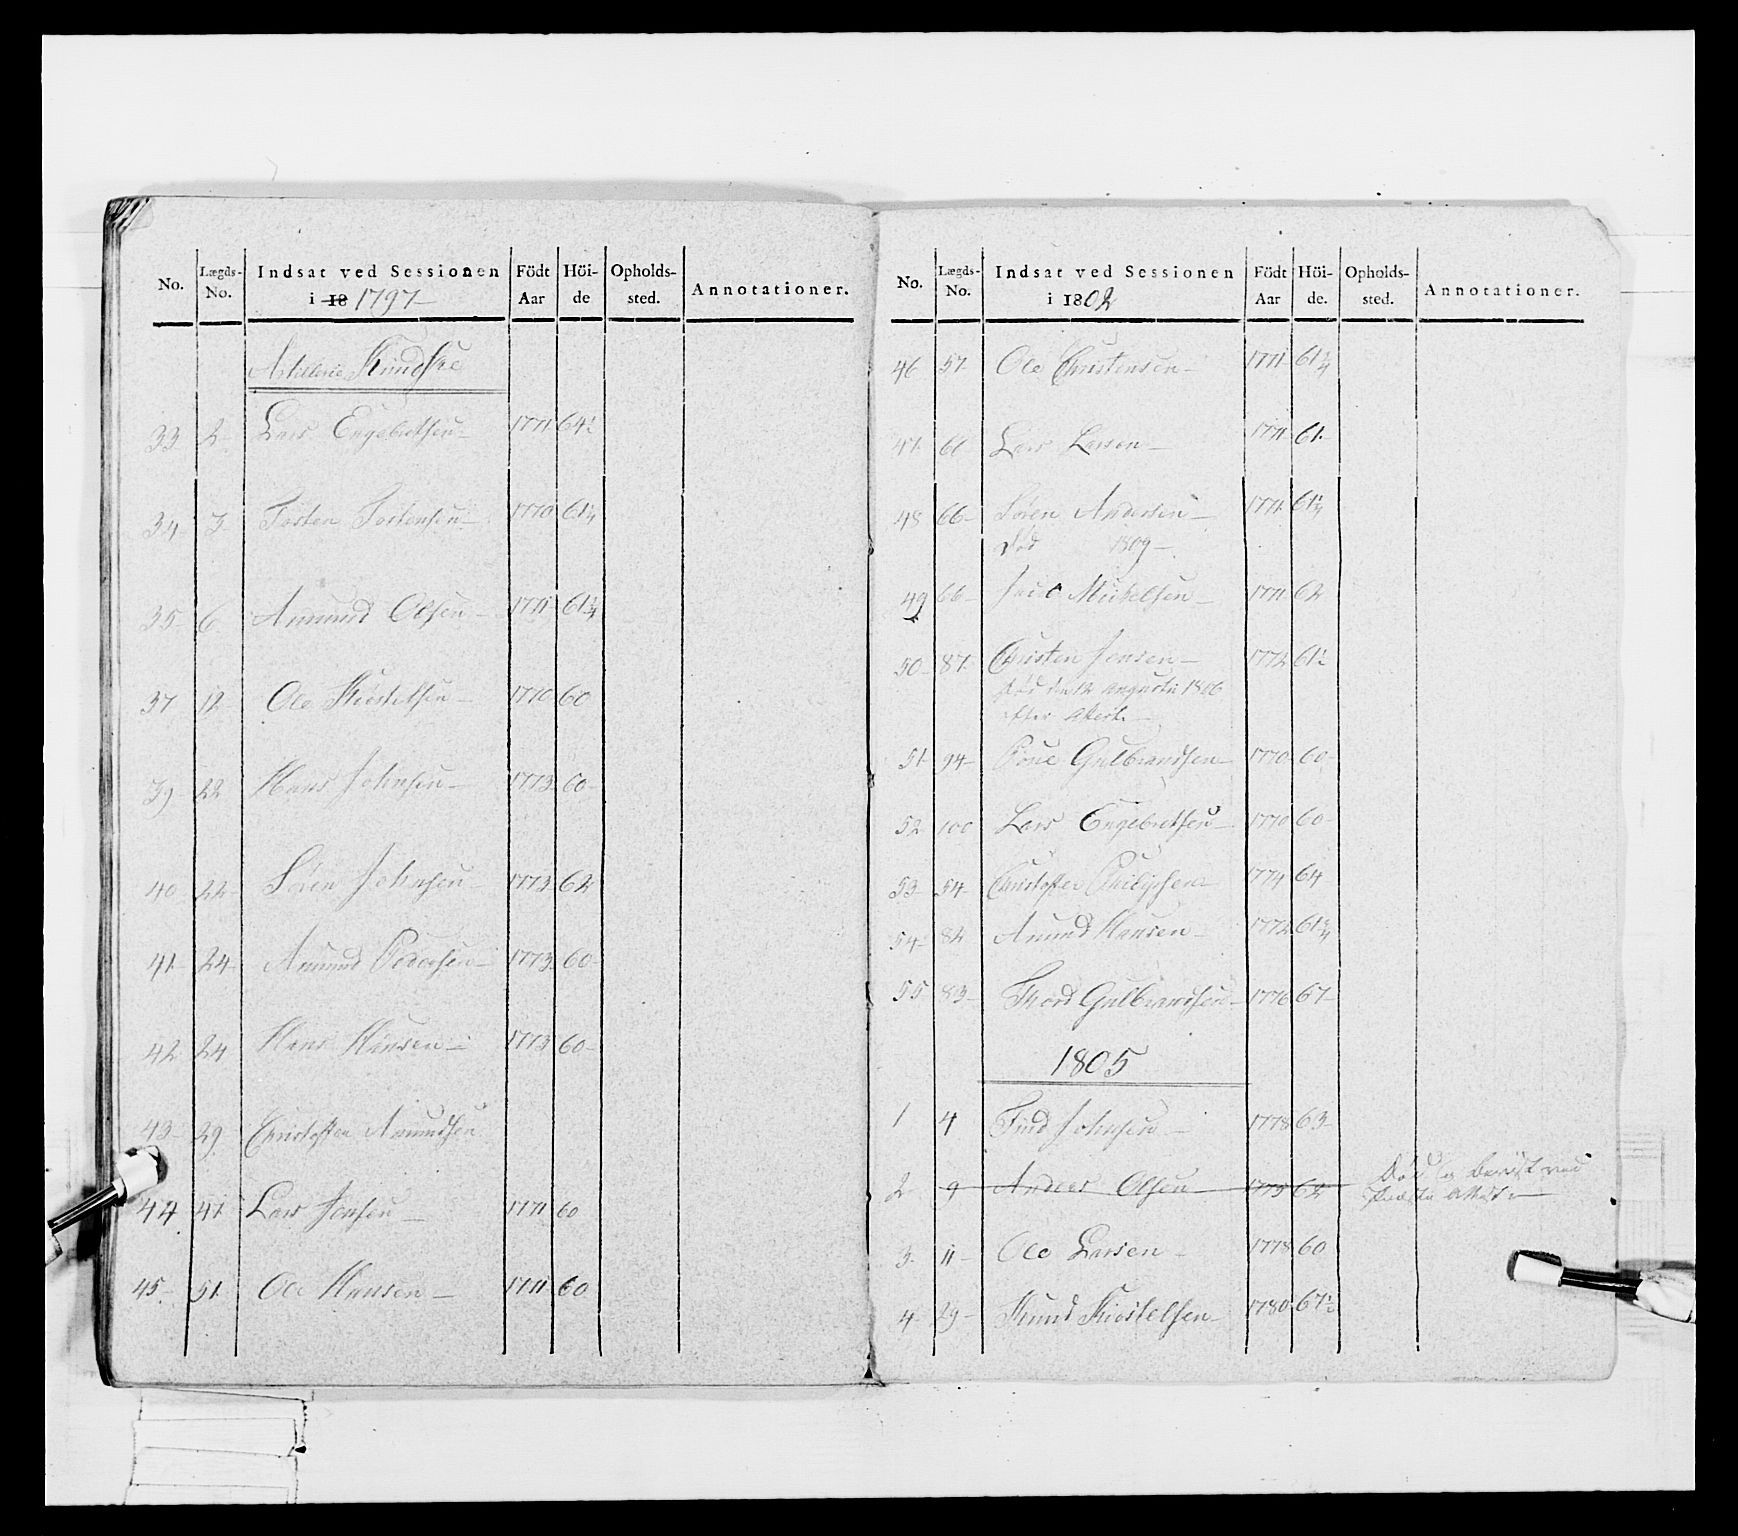 No. Lægds-No. Indsat ved Sessionen i 18 1797 Födt Aar Höi-de Opholds-sted. Annotationer.
Artillerie Kudske
33 2 Lars Engebretsen 1771 64½
34 3 Tosten Tostensen 1770 61¼
35 6 Amund Olsen 1771 61¼
37 12 Ole Kiøstelsen 1770 60
39 22 Hans Johnsen 1773 60
40 22 Søren Johnsen 1773 62
41 24 Amund Pedersen 1773 60
42 24 Hans Hansen 1773 60
43 29 Christoffer Amundsen
44 47 Lars Jensen 1771 60
45 51 Ole Hansen 1771 60
No. Lægds-No. Indsat ved Sessionen i 1802 Födt Aar Höi-de. Opholds-sted. Annotationer.
46 57 Ole Christensen 1771 61¾
47 66 Lars Larsen 1771 61
48 66 Søren Andersen 1771 61¼
død 1809
49 66 Mickelsen 1771 62
50 87 Christen Jensen 1772 61½
død den 12 Augusti 1806
efter Attest
51 94 Gulbrandsen 1770 60
52 100 Lars Engebretsen 1770 60
53 54 Christoffer Philipsen 1774 64
54 82 Amund Hansen 1772 61¾
55 83 Thord Gulbrandsen 1776 67
1805
1 4 Find Johnsen 1778 63
2 9 Anders Olsen 1775 62 Død og beviist ved
Præste Attest
3 11 Ole Larsen 1778 60
4 29 Knud Kiøstelsen 1780 67½